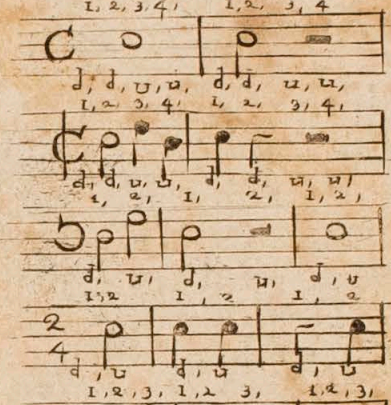 1, 2, 3, 4, 1, 2, 3, 4
d, d, u, u, d, d, u, u,
1, 2, 3, 4, 1, 2, 3, 4,
d, d, u, u, d, d, u, u,
1, 2, 1, 2, 1, 2,
d, u, d, u, d, u
1, 2 1, 2 1, 2
2
4
d, u d, u d, u
1, 2, 3, 1, 2 3, 1, 2, 3,